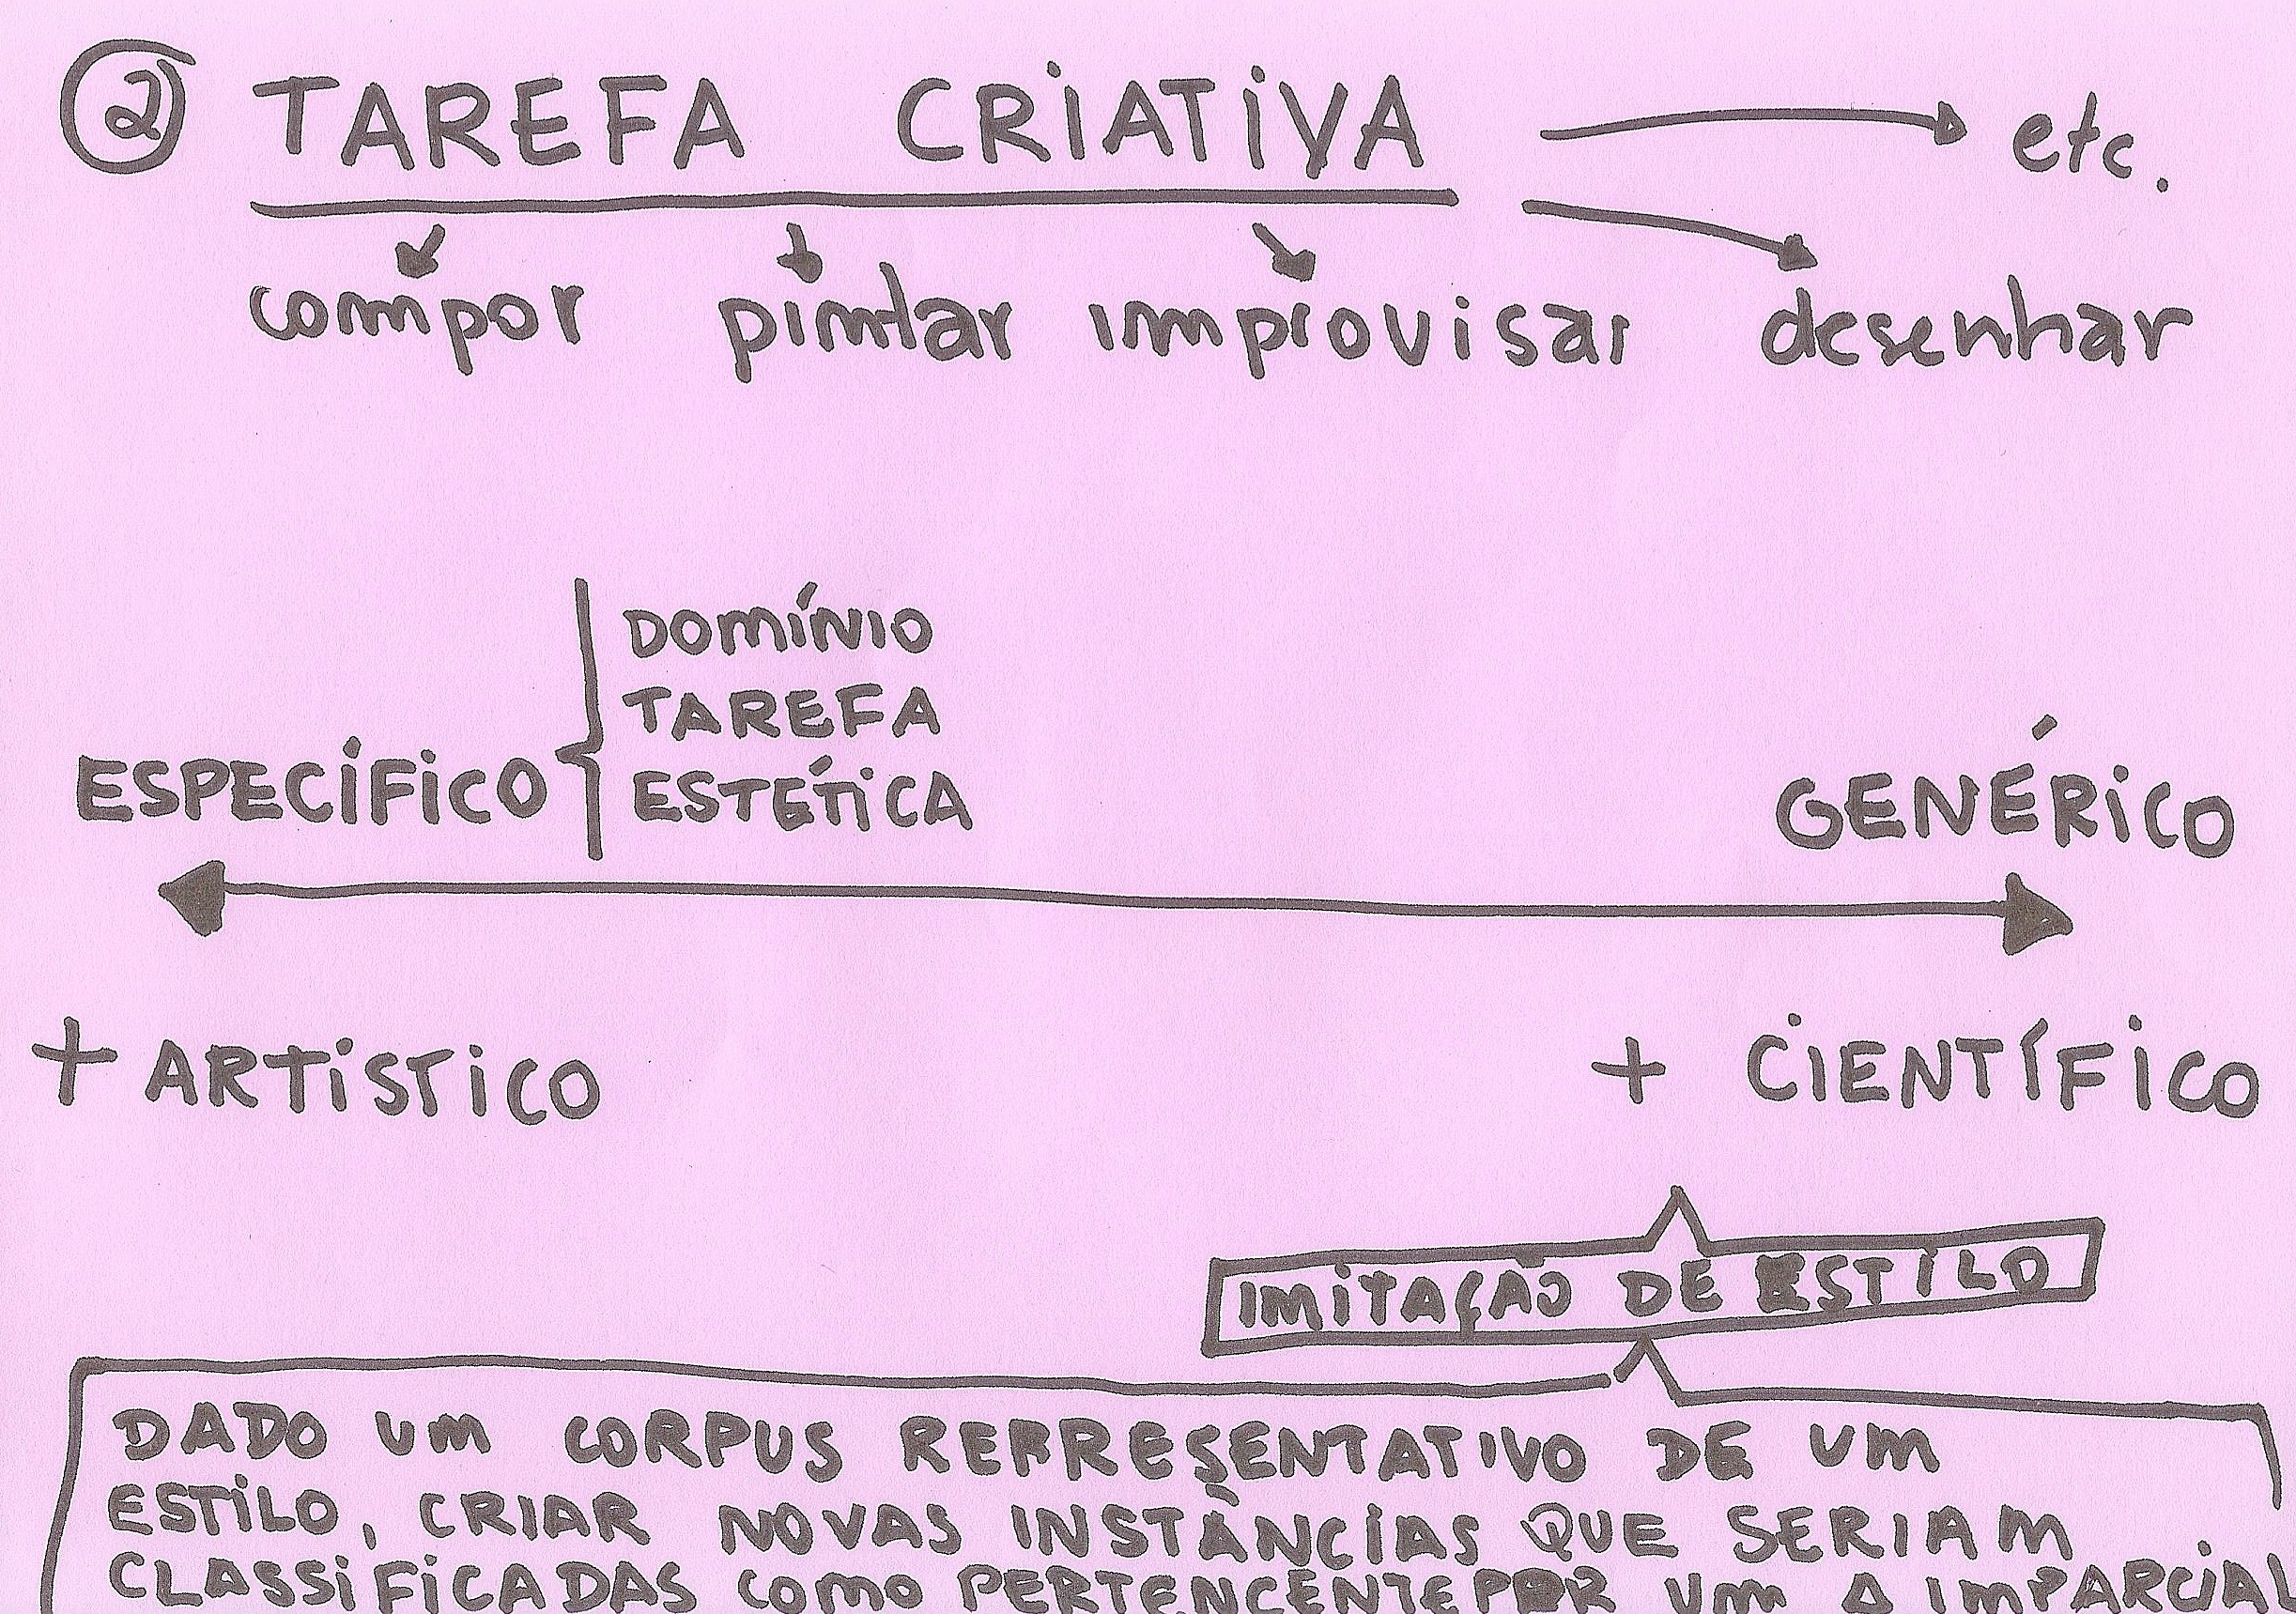 2 TAREFA CRIATIVA etc.
compor pintar improvisar desenhar
DOMÍNIO
TAREFA
ESPECÍFICO ESTÉTICA GENÉRICO
+ ARTÍSTICO + CIENTÍFICO
IMITAÇÃO DE ESTILO
DADO UM CORPUS REPRESENTATIVO DE UM
ESTILO, CRIAR NOVAS INSTÂNCIAS QUE SERIAM
CLASSIFICADAS COMO PERTENCENTE POR UM Δ IMPARCIAL